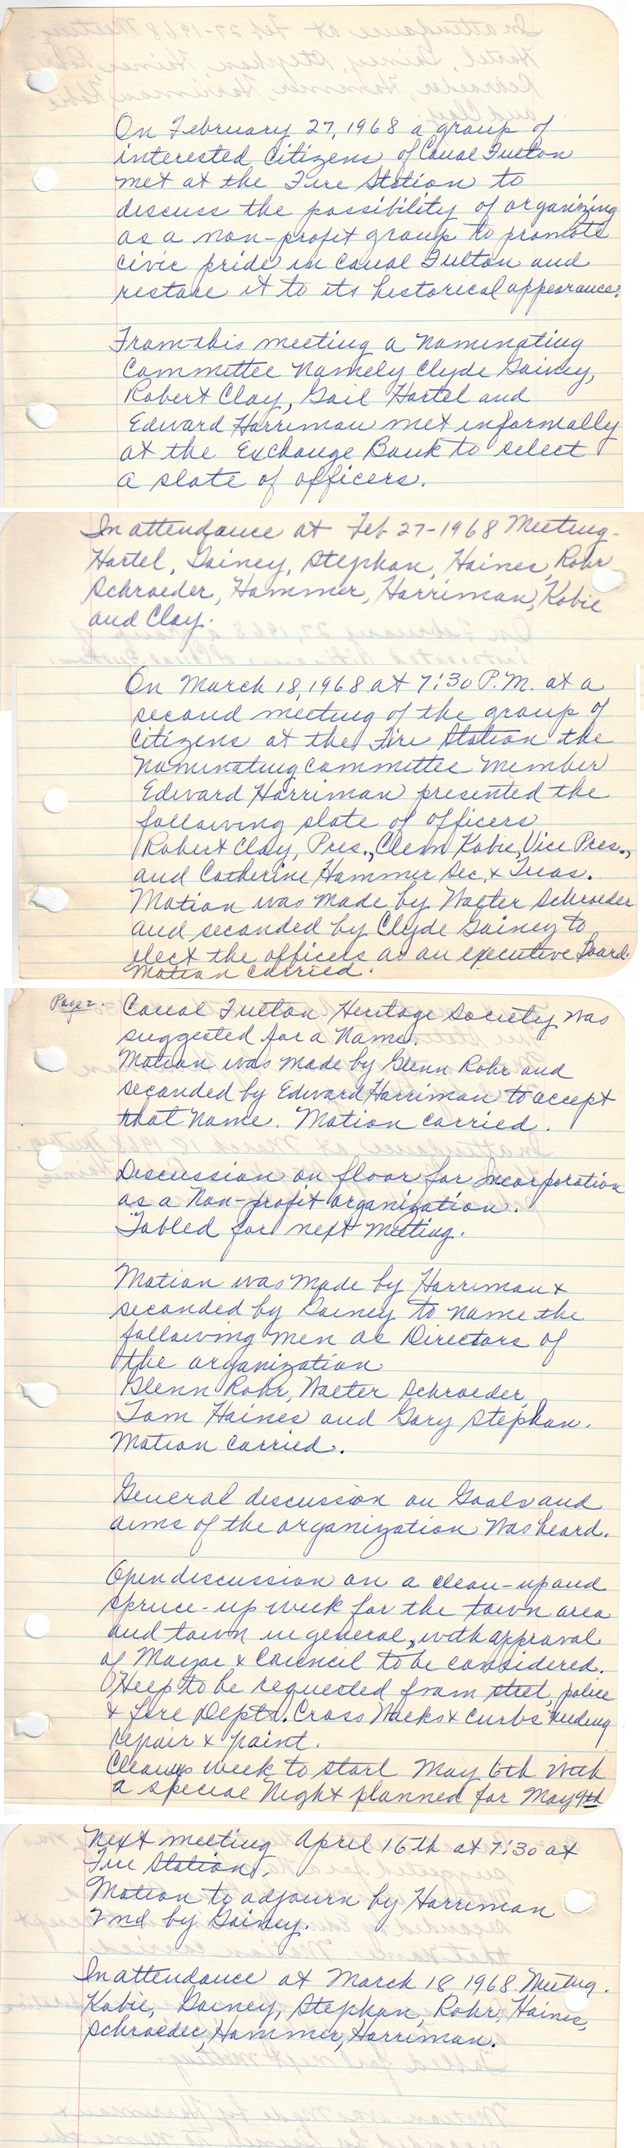 On February 27, 1968 a group of
interested Citizens of Canal Fulton
met at the Fire Station to
discuss the possibility of organizing
as a non-profit group to promote
civic pride in Canal Fulton and
restore it to its historical appearance.
From this meeting a Nominating
Committee Namely Clyde Gainey,
Robert Clay, Gail Hartel and
Edward Harriman met informally
at the Exchange Bank to select
a slate of officers.
In attendance at Feb 27-1968 Meeting.
Hartel, Gainey, Stephan, Haines, Rohr
Schroeder, Hammer, Harriman, Kobie
and Clay.
On March 18, 1968 at 7:30 P.M. at a
second meeting of the group of
Citizens at the Fire Station the
Nominating Committee Member
Edward Harriman presented the
following slate of officers
Robert Clay, Pres., Clem Kobie, Vice Pres.,
and Catherine Hammer Sec. & Treas.
Motion was made by Walter Schroeder
and seconded by Clyde Gainey to
elect the officers as an executive Board.
Motion carried.
Page 2. Canal Fulton Heritage Society was
suggested for a Name.
Motion was made by Glenn Rohr and
seconded by Edward Harriman to accept
that Name. Motion carried.
Discussion on floor for Incorporation
as a Non-profit organization.
Tabled for next Meeting.
Motion was Made by Harriman &
seconded by Gainey to name the
following men as Directors of
the organization
Glenn Rohr, Walter Schroeder,
Tom Haines and Gary Stephan.
Motion carried.
General discussion on Goals and
aims of the organization Was heard.
Open discussion on a clean-up and
spruce-up week for the town area
and town in general, with approval
of Mayor & Council to be considered.
Help to be requested from street, police
& fire Depts. Cross Walks & curbs needing
repair & paint.
Cleanup week to start May 6th with
a special Night planned for May 9th
Next meeting April 16th at 7:30 at
Fire Station.
Motion to adjourn by Harriman
2nd by Gainey.
In attendance at March 18 1968 Meeting.
Kobie, Gainey, Stephan, Rohr, Haines,
Schroeder, Hammer, Harriman.